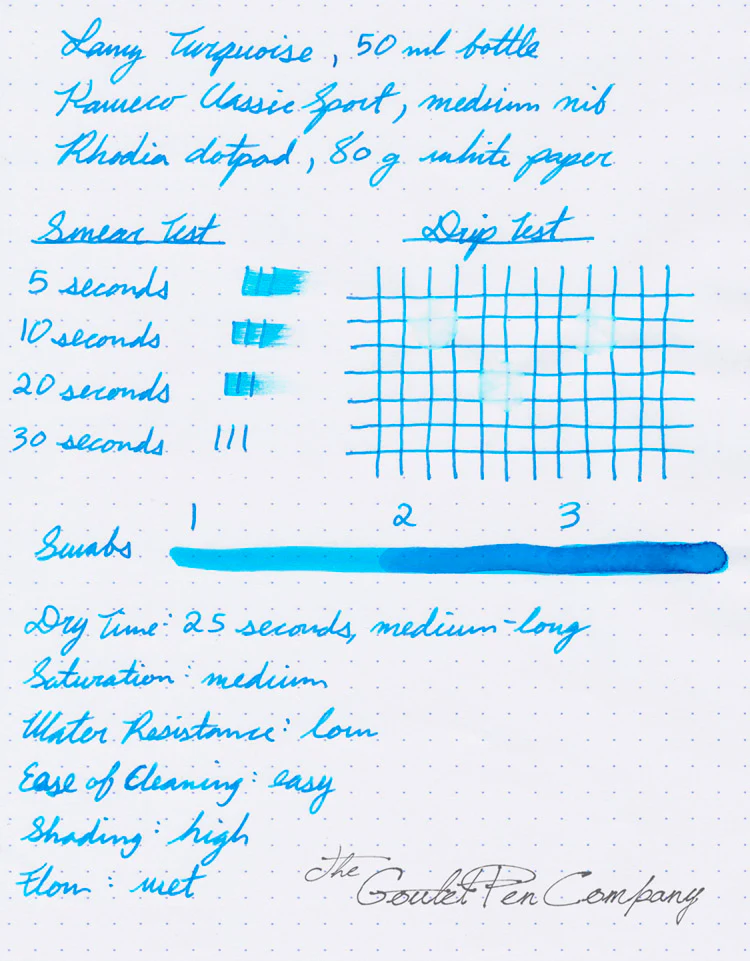 Lamy Turquoise, 50 ml bottle
Kaweco Classic Sport, medium nib
Rhodia dotpad, 80 g white paper
Smear Test
Drip Test
5 seconds
10 seconds
20 seconds
30 seconds
1 2 3
Swabs
Dry Time: 25 seconds, medium-long
Saturation: medium
Water Resistance: low
Ease of Cleaning: easy
Shading: high
Flow: wet
The Goulet Pen Company